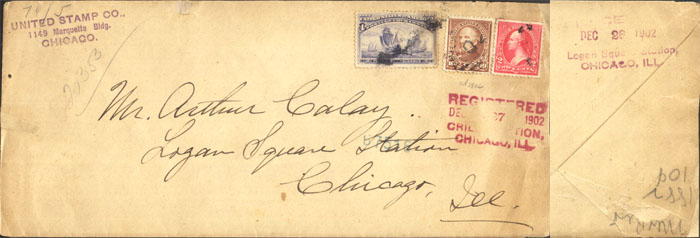 UNITED STAMP CO.,
1149 Marquette Bldg.
CHICAGO.
20353
Mr. Arthur Calay..
Logan Square Station
Chicago,
Ill.
REGISTERED
DEC 27 1902
STATION,
CHICAGO, ILL.
DEC 28 1902
Logan Square Station,
CHICAGO, ILL.